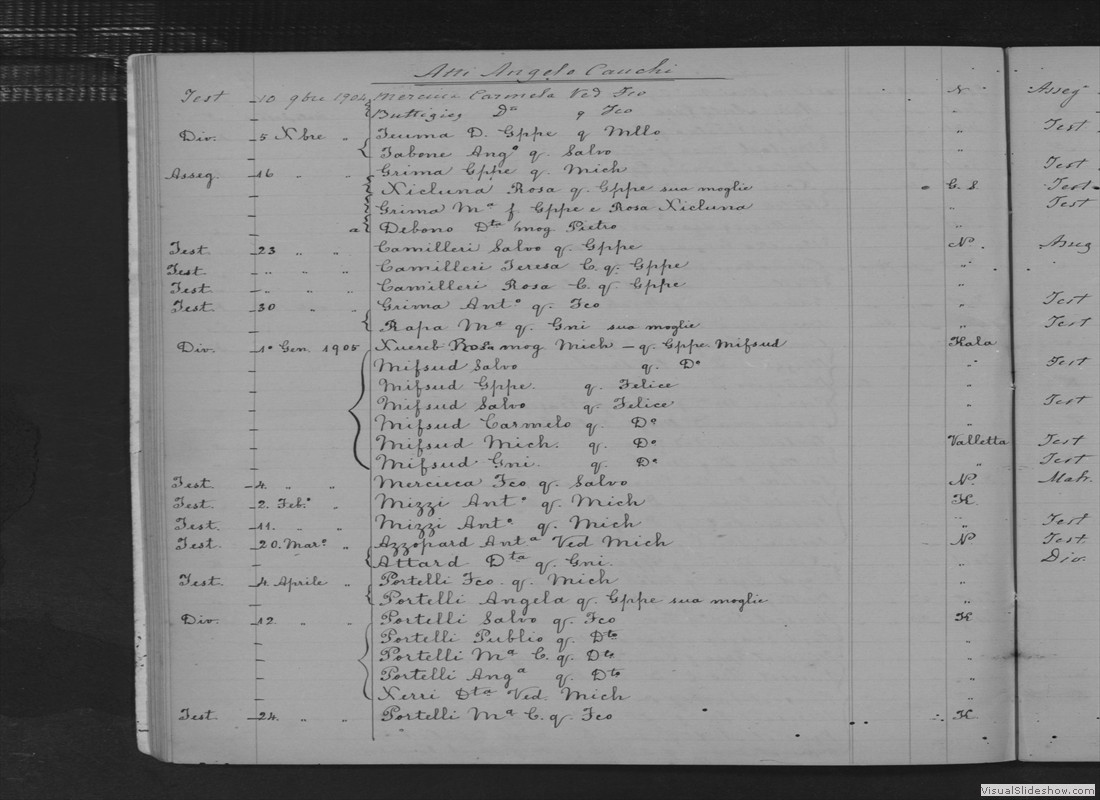 Atti Angelo Cauchi
Test 10 9bre 1904 Mercieca Carmela Ved Fco N. Asseg
Buttigieg Da q Fco "
Div. 5 Xbre " Teuma D. Gppe q Mllo " Test
Tabone Ang° q. Salvo "
Asseg. 16 " " Grima Gppe q. Mich " Test
Xicluna Rosa q. Gppe sua moglie G. S. Test
Grima Ma f. Gppe e Rosa Xicluna " Test
a Debono Dta mog Pietro "
Test. 23 " " Camilleri Salvo q. Gppe N. Asseg
Test. " " " Camilleri Teresa C. q. Gppe "
Test " " " Camilleri Rosa C. q. Gppe "
Test. 30 " " Grima Ant° q. Fco " Test
Rapa Ma q. Gni sua moglie " Test
Div. 1° Gen. 1905 Xuereb Rosa mog Mich – q. Gppe Mifsud Hala
Mifsud Salvo q. D° " Test
Mifsud Gppe. q. Felice "
Mifsud Salvo q. Felice " Test
Mifsud Carmelo q. D° "
Mifsud Mich. q. D° Valletta Test
Mifsud Gni. q. D° " Test
Test. 4. " " Mercieca Fco q. Salvo N. Matr.
Test. 2. Feb° " Mizzi Ant° q. Mich H.
Test. 11. " " Mizzi Ant° q. Mich " Test
Test. 20. Mar° " Azzopard Anta Ved Mich N Test
Attard Dta q. Gni. " Div.
Test. 4. Aprile " Portelli Fco. q. Mich "
Portelli Angela q. Gppe sua moglie "
Div. 12. " " Portelli Salvo q. Fco H
Portelli Publio q. Dto "
Portelli Ma C. q. Dto "
Portelli Anga q. Dto "
Xerri Dta Ved. Mich "
Test. 24. " " Portelli Ma C. q. Fco H
VisualSlideshow.com